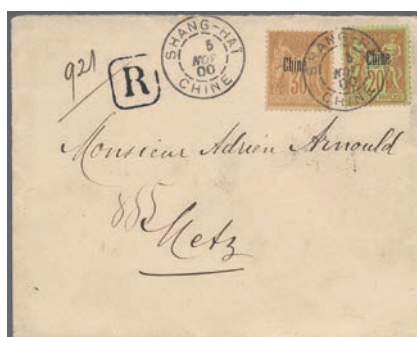 SHANG-HAI
5
NOV
00
CHINE
Chine
30
SHANG-HAI
5
NOV
00
CHINE
Chine
20
921
R
Monsieur Adrien Arnould
Metz